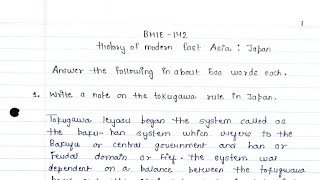 1
BHIE - 142
History of modern East Asia : Japan
Answer the following in about 500 words each.
1. Write a note on the tokugawa rule in Japan.
Tokugawa Ieyasu began the system called as
the baku-han system which refers to the
Bakufu or central government and han or
Feudal domain or fief. The system was
dependent on a balance between the tokugawa